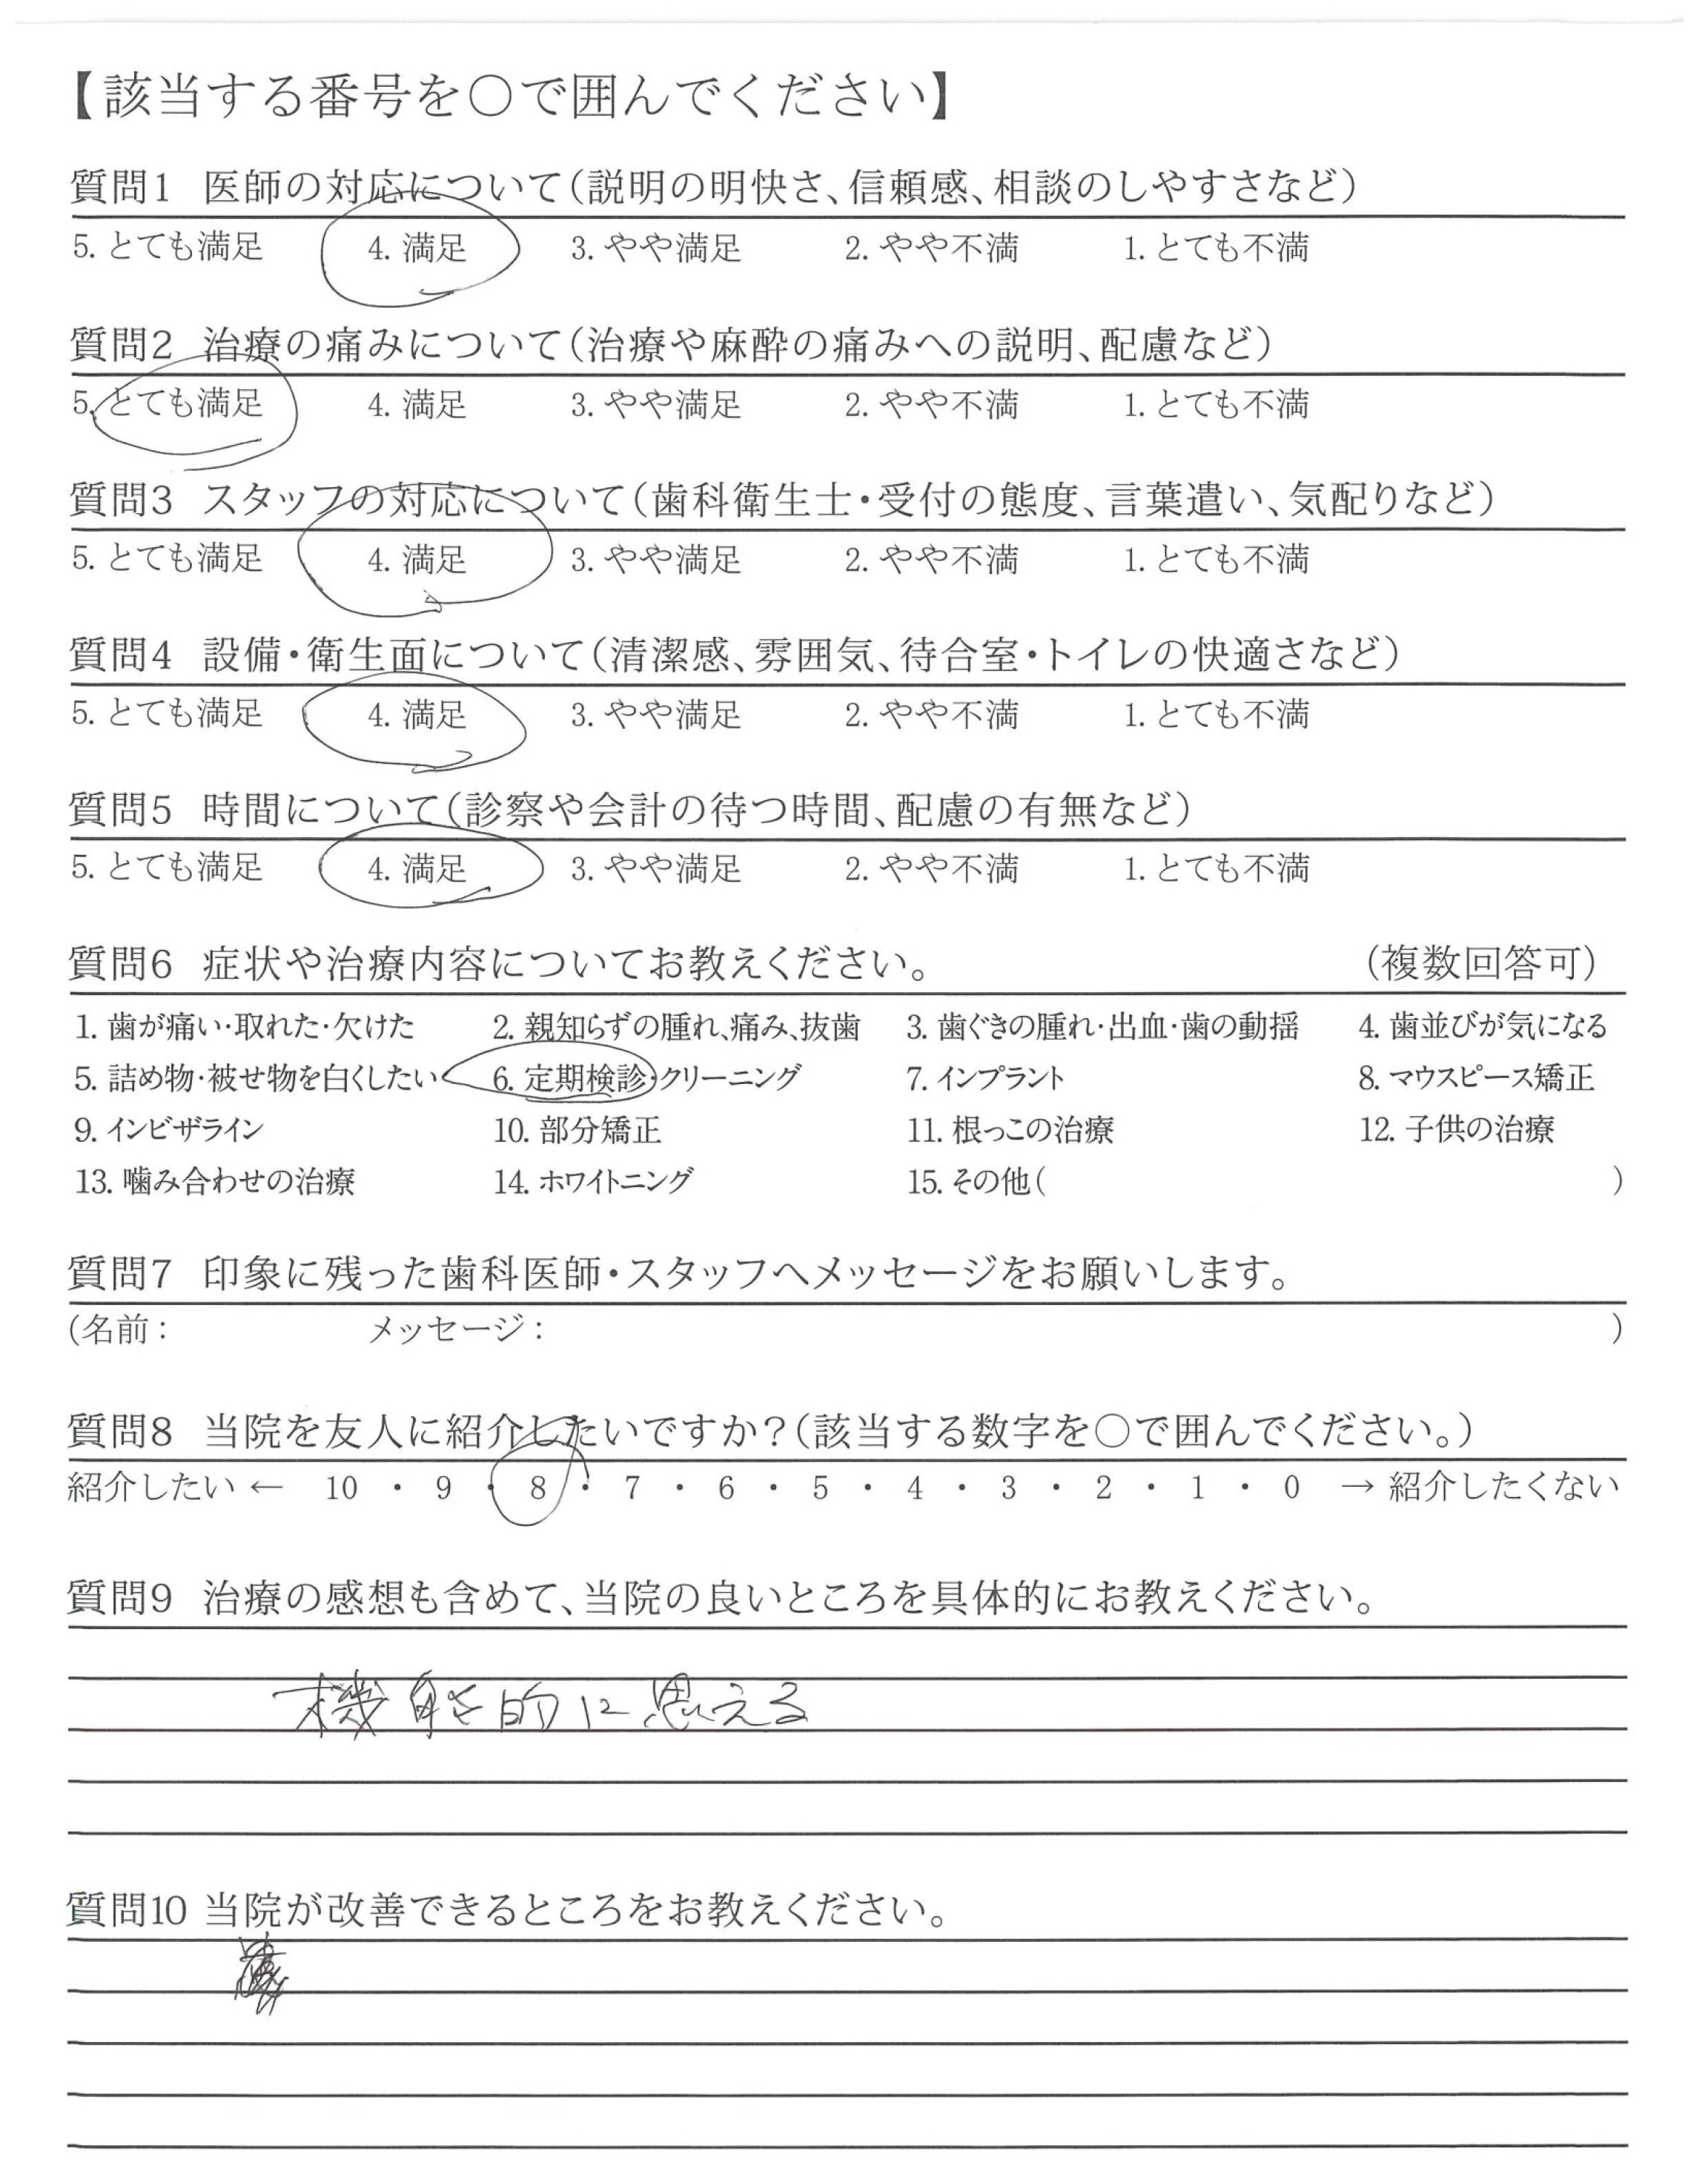 【該当する番号を○で囲んでください】
質問1 医師の対応について（説明の明快さ、信頼感、相談のしやすさなど）
5. とても満足 4. 満足 3. やや満足 2. やや不満 1. とても不満
質問2 治療の痛みについて（治療や麻酔の痛みへの説明、配慮など）
5. とても満足 4. 満足 3. やや満足 2. やや不満 1. とても不満
質問3 スタッフの対応について（歯科衛生士・受付の態度、言葉遣い、気配りなど）
5. とても満足 4. 満足 3. やや満足 2. やや不満 1. とても不満
質問4 設備・衛生面について（清潔感、雰囲気、待合室・トイレの快適さなど）
5. とても満足 4. 満足 3. やや満足 2. やや不満 1. とても不満
質問5 時間について（診察や会計の待つ時間、配慮の有無など）
5. とても満足 4. 満足 3. やや満足 2. やや不満 1. とても不満
質問6 症状や治療内容についてお教えください。 （複数回答可）
1. 歯が痛い・取れた・欠けた 2. 親知らずの腫れ、痛み、抜歯 3. 歯ぐきの腫れ・出血・歯の動揺 4. 歯並びが気になる
5. 詰め物・被せ物を白くしたい 6. 定期検診・クリーニング 7. インプラント 8. マウスピース矯正
9. インビザライン 10. 部分矯正 11. 根っこの治療 12. 子供の治療
13. 噛み合わせの治療 14. ホワイトニング 15. その他（ ）
質問7 印象に残った歯科医師・スタッフへメッセージをお願いします。
（名前： メッセージ： ）
質問8 当院を友人に紹介したいですか？（該当する数字を○で囲んでください。）
紹介したい ← 10 ・ 9 ・ 8 ・ 7 ・ 6 ・ 5 ・ 4 ・ 3 ・ 2 ・ 1 ・ 0 → 紹介したくない
質問9 治療の感想も含めて、当院の良いところを具体的にお教えください。
機能的に思える
質問10 当院が改善できるところをお教えください。